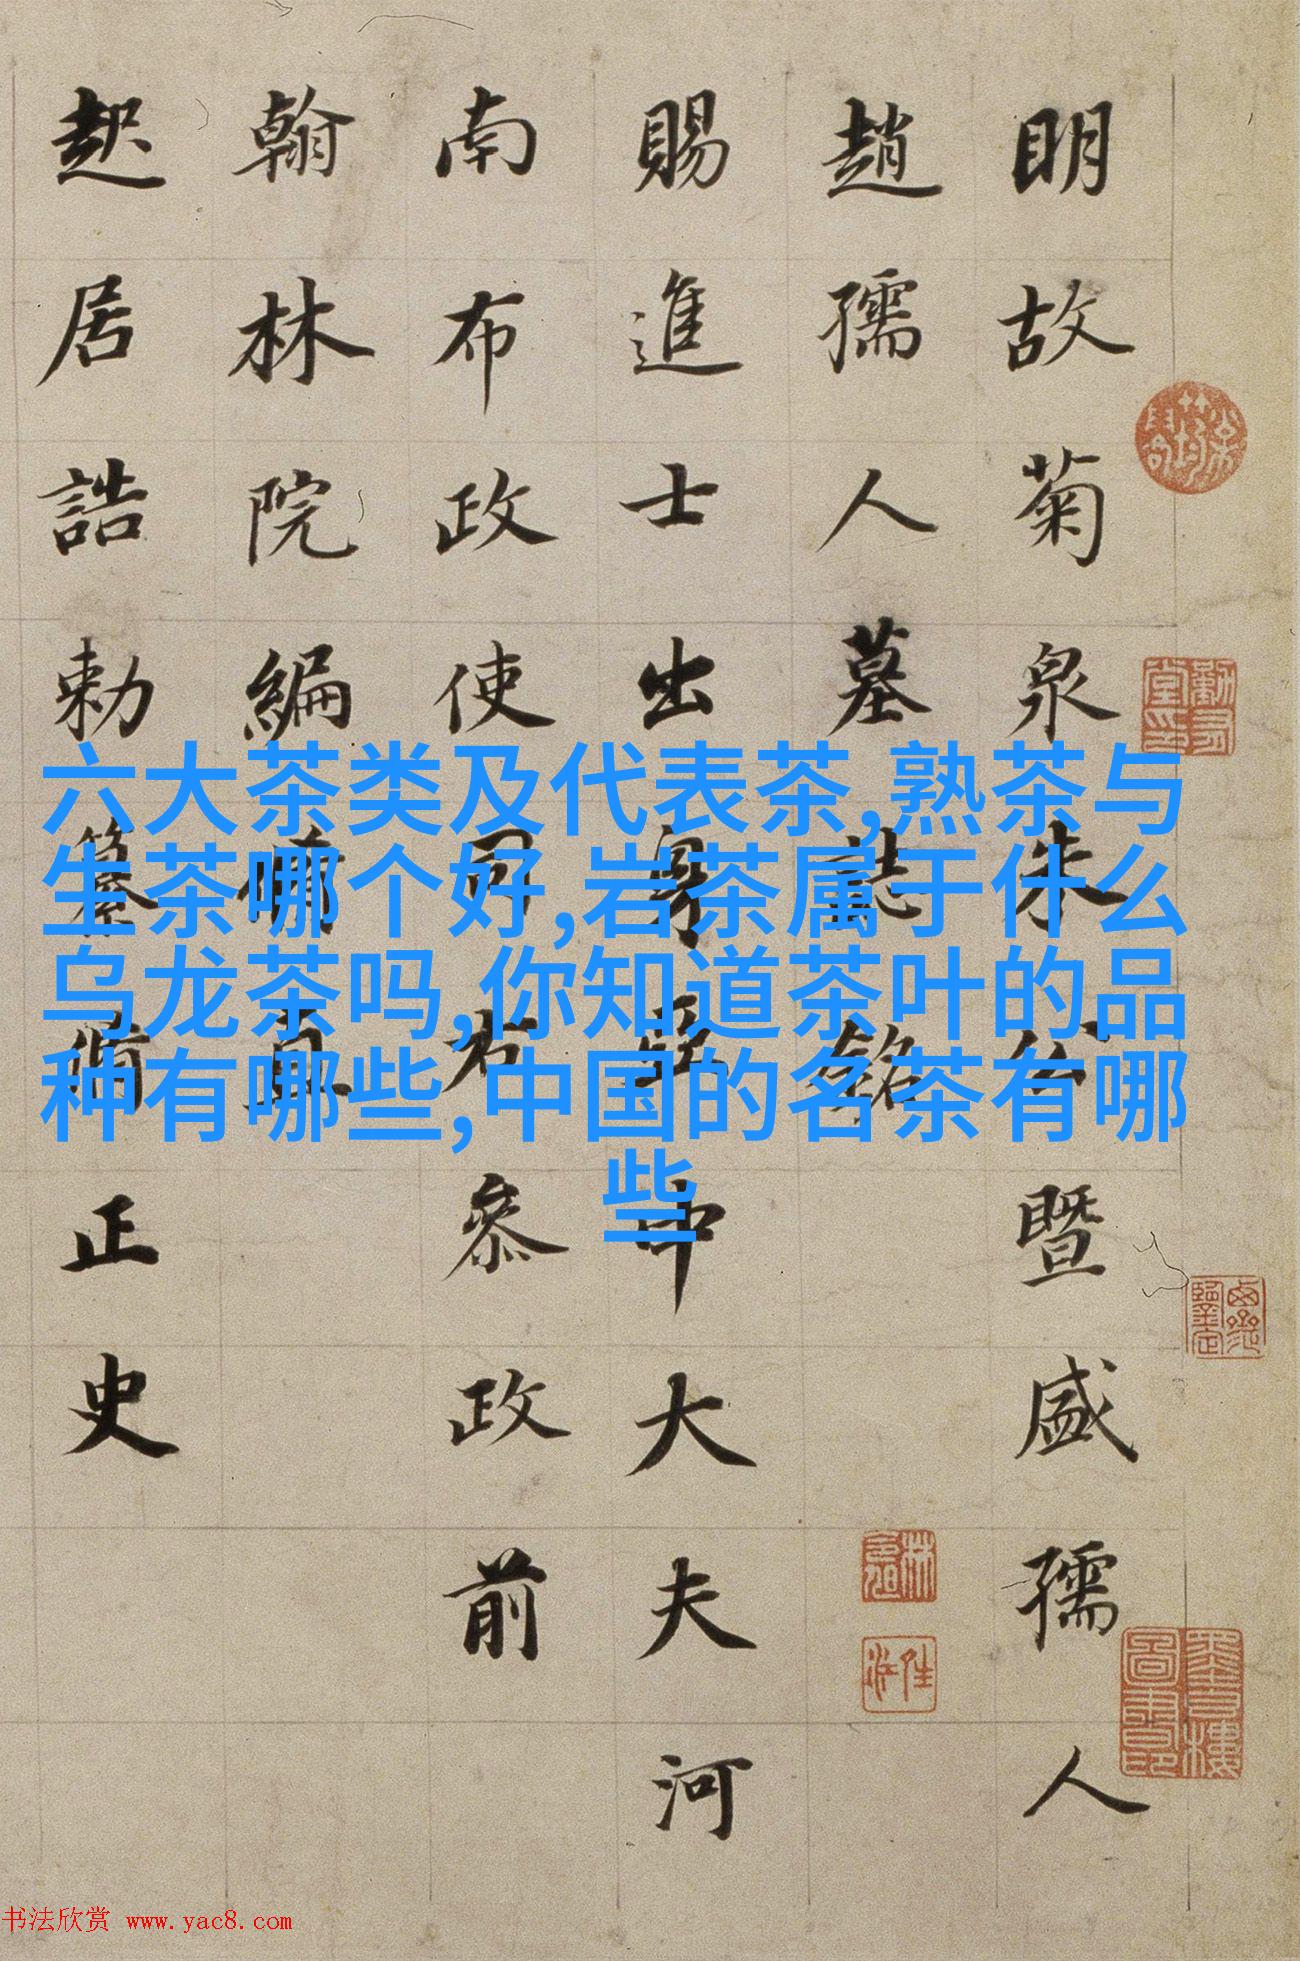 明故菊泉朱公暨盛孺人
趙孺人墓誌銘
賜進士出身亞中大夫河
南布政使司右叅政前
翰林院編脩直
起居誥勅篹脩正史
六大茶类及代表茶,熟茶与
生茶哪个好,岩茶属于什么
乌龙茶吗,你知道茶叶的品
种有哪些,中国的名茶有哪
些
书法欣赏 www.yac8.com